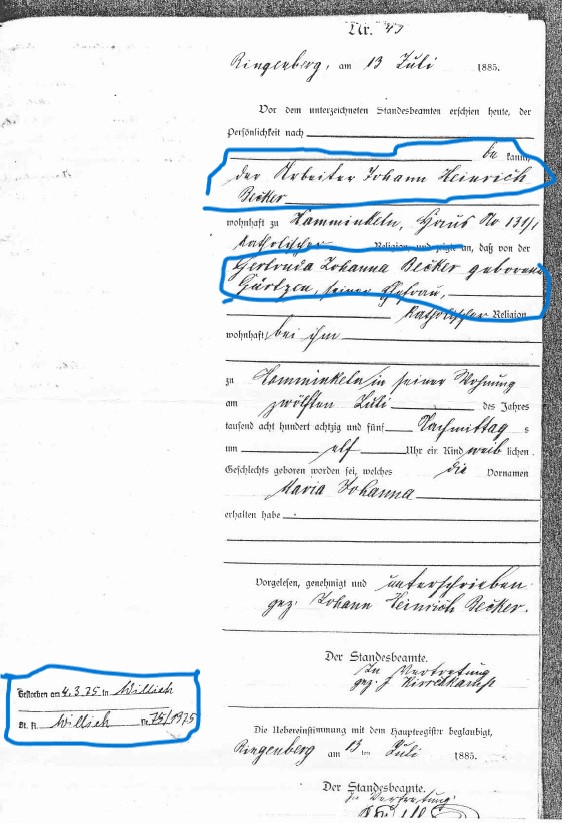 Nr. 43
Ringenberg, am 13 Juli 1885.
Vor dem unterzeichneten Standesbeamten erschien heute, der
Persönlichkeit nach
be kannt,
der Arbeiter Johann Heinrich
Becker
wohnhaft zu Hamminkeln, Haus No 131/1
katholischer Religion, und zeigte an, daß von der
Gertruda Johanna Becker geborene
seiner Ehefrau,
katholischer Religion
wohnhaft bei ihm
zu Hamminkeln in seiner Wohnung
am zwölften Juli des Jahres
tausend acht hundert achtzig und fünf Nachmittag s
um elf Uhr ein Kind weib lichen
Geschlechts geboren worden sei, welches die Vornamen
Maria Johanna
erhalten habe
Vorgelesen, genehmigt und unterschrieben
gez. Johann Heinrich Becker.
Der Standesbeamte.
In Vertretung
gez.
Gestorben am 4.3.75 in Willich
St. A. Willich Nr. 75/1975
Die Uebereinstimmung mit dem Hauptregister beglaubigt,
Ringenberg am 13 ten Juli 1885.
Der Standesbeamte.
In Vertretung